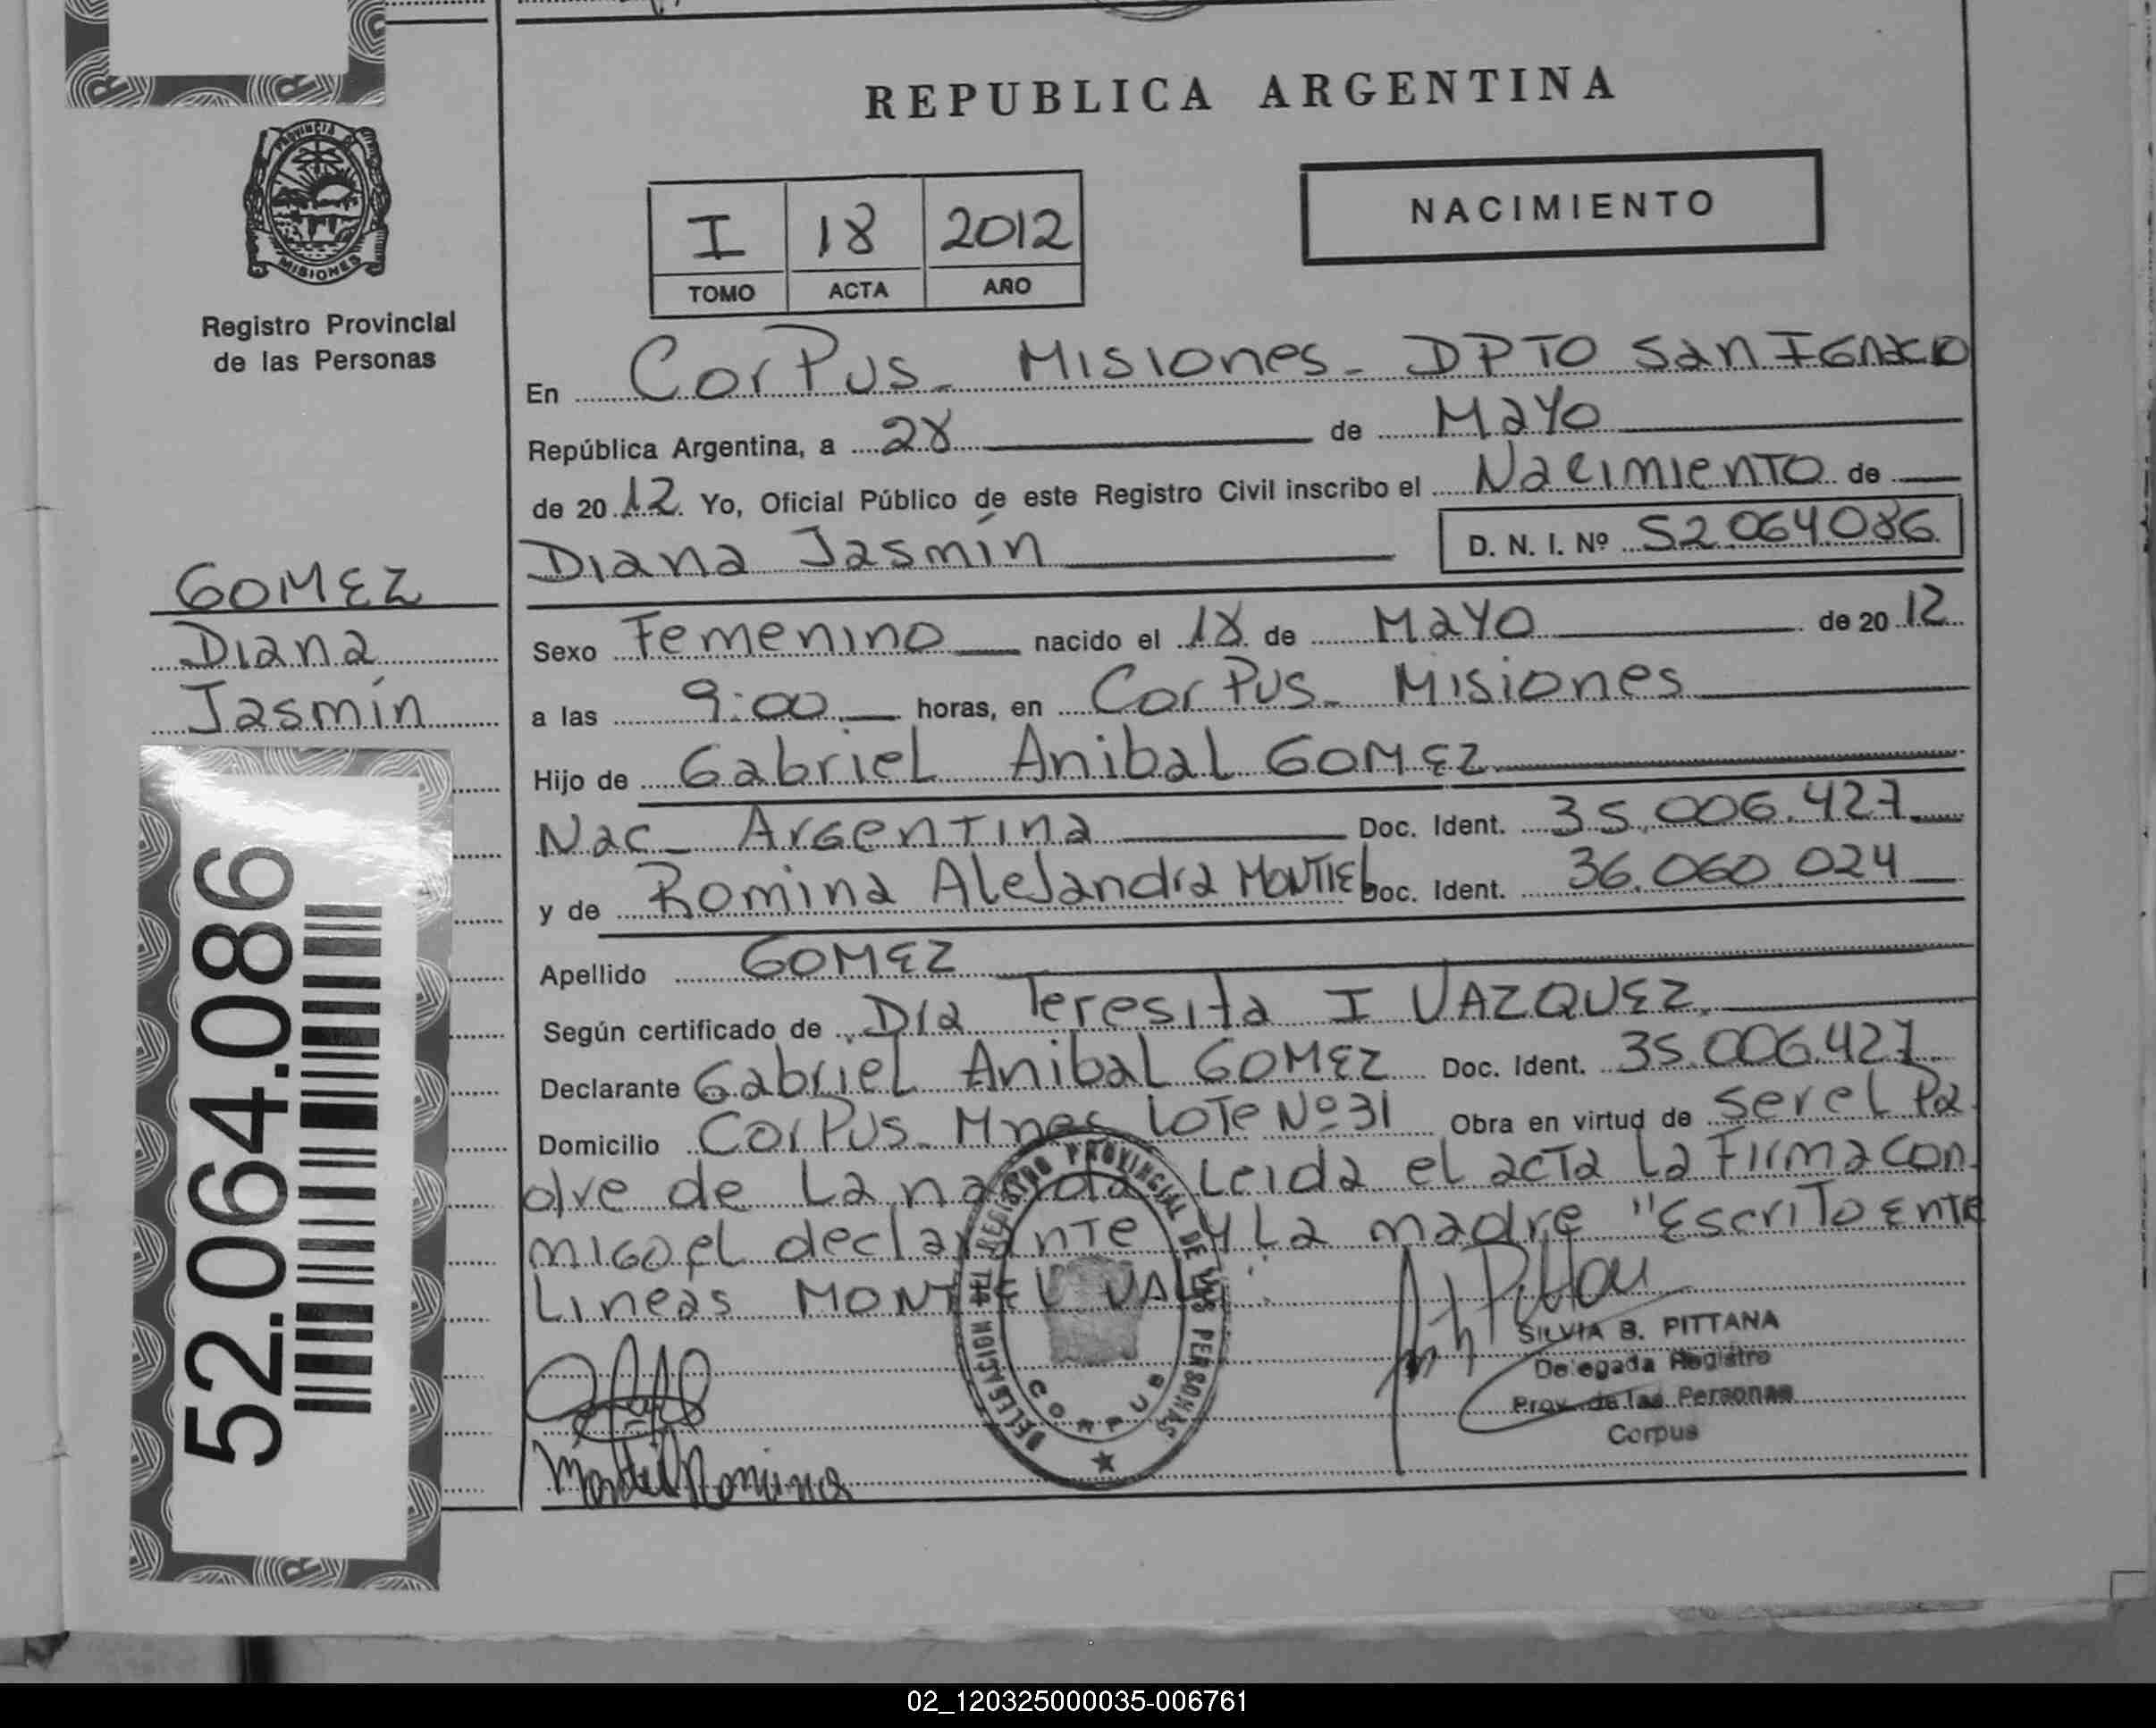 REPUBLICA ARGENTINA
PROVINCIA DE
MISIONES
Registro Provincial
de las Personas
I 18 2012
TOMO ACTA AÑO
NACIMIENTO
En Corpus - Misiones - DPTO San Ignacio
República Argentina, a 28 de Mayo
de 2012 Yo, Oficial Público de este Registro Civil inscribo el Nacimiento de
Diana Jasmín D. N. I. Nº 52.064.086
GOMEZ
Diana
Jasmín
Sexo Femenino nacido el 18 de Mayo de 2012
a las 9:00 horas, en Corpus - Misiones
Hijo de Gabriel Anibal GOMEZ
Nac - Argentina Doc. Ident. 35.006.427
y de Romina Alejandra MONTIEL Doc. Ident. 36.060.024
Apellido GOMEZ
Según certificado de Dra Teresita I VAZQUEZ
Declarante Gabriel Anibal GOMEZ Doc. Ident. 35.006.427
Domicilio Corpus - Mnes Lote Nº 31 Obra en virtud de ser el Pa
dre de La nacida Leida el acta La Firma con
migo el declarante y La madre "Escrito Entre
Lineas MONTIEL VALE"
52.064.086
REGISTRO PROVINCIAL DE LAS PERSONAS
CORPUS
SILVIA B. PITTANA
Delegada Registro
Prov. de las Personas
Corpus
Montiel Romina
02_120325000035-006761